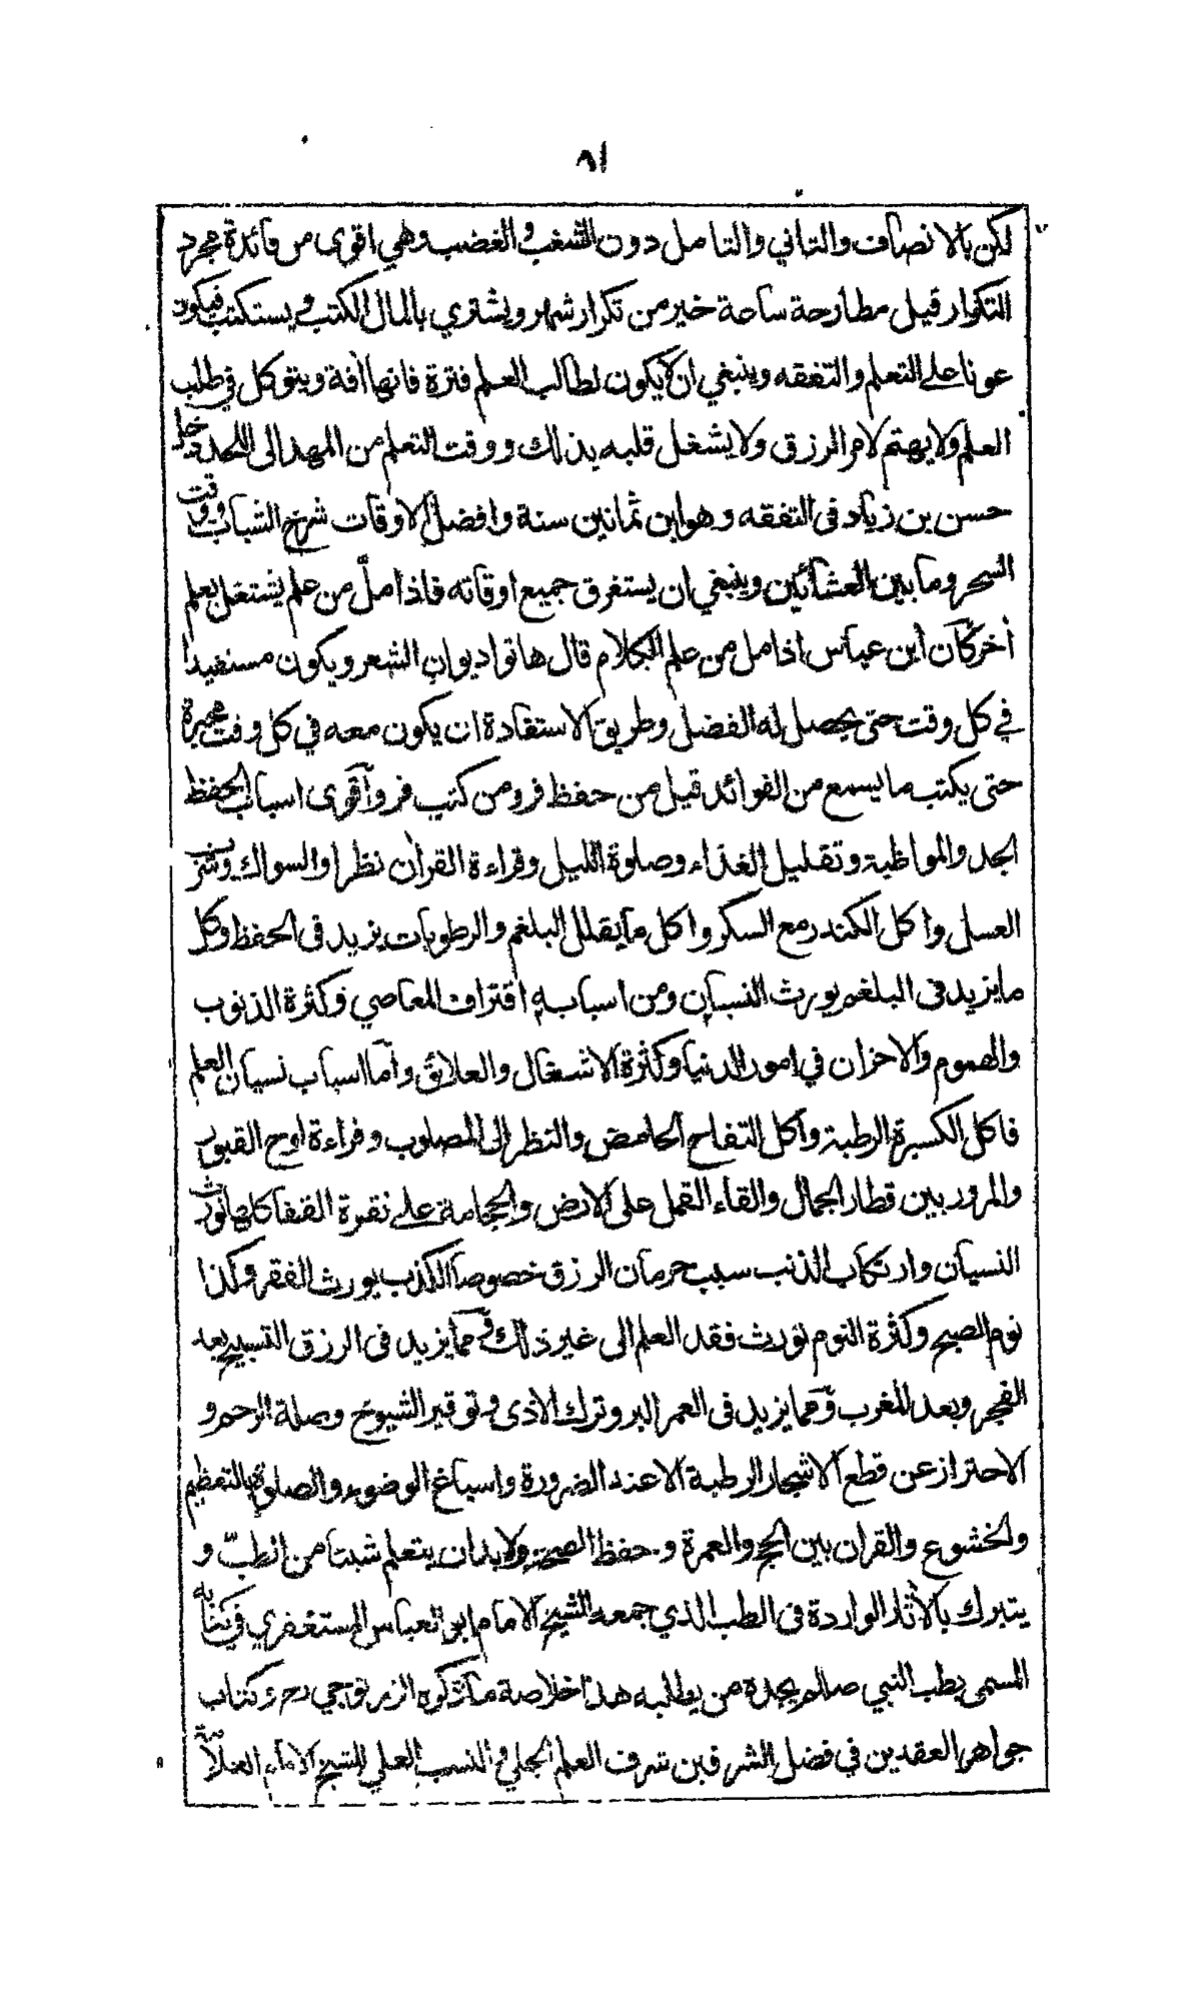 ٨١
لكن بالانصاف والتاني والتامل دون الشغب والغضب وهي اقوى من فائدة مجرد
التكرار قيل مطارحة ساعة خير من تكرار شهر ويشتري بالمال الكتب ويستكتب فيكون
عونا على التعلم والتفقه وينبغي ان لا يكون لطالب العلم فترة فانها آفة ويتوكل في طلب
العلم ولا يهتم لامر الرزق ولا يشغل قلبه بذلك ووقت التعلم من المهد الى اللحد دخل
حسن بن زياد فى التفقه وهو ابن ثمانين سنة وافضل الاوقات شرخ الشباب ووقت
السحر وما بين العشائين وينبغي ان يستغرق جميع اوقاته فاذا ملّ من علم يشتغل بعلم
أخر كان ابن عباس اذا مل من علم الكلام قال هاتوا ديوان الشعر ويكون مستفيدا
في كل وقت حتى يحصل له الفضل وطريق الاستفادة ان يكون معه في كل وقت محبرة
حتى يكتب ما يسمع من الفوائد قيل من حفظ فر ومن كتب قر وأقوى اسباب الحفظ
الجد والمواظبة وتقليل الغذاء وصلوة الليل وقراءة القرأن نظرا والسواك وشرب
العسل واكل الكندر مع السكر واكل ما يقلل البلغم والرطوبات يزيد فى الحفظ وكل
ما يزيد فى البلغم يورث النسيان ومن اسبابه اقتراف المعاصي وكثرة الذنوب
والهموم والاحزان في امور الدنيا وكثرة الاشغال والعلائق وأما اسباب نسيان العلم
فاكل الكسبرة الرطبة وأكل التفاح الحامض والنظر الى المصلوب وقراءة لوح القبور
والمرور بين قطار الجمال والقاء القمل على الارض والحجامة على نقرة القفا كلها تورث
النسيان وارتكاب الذنب سبب حرمان الرزق خصوصا الكذب يورث الفقر وكذا
نوم الصبح وكثرة النوم تورث فقد العلم الى غير ذلك ومما يزيد فى الرزق التسبيح بعد
الفجر وبعد المغرب ومما يزيد فى العمر البر وترك الاذى وتوقير الشيوخ وصلة الرحم و
الاحتراز عن قطع الاشجار الرطبة الا عند الضرورة واسباغ الوضوء والصلوة بالتعظيم
والخشوع والقران بين الحج والعمرة و حفظ الصحة ولا بد ان يتعلم شيئا من الطبّ و
يتبرك بالأثار الواردة فى الطب الذي جمعه الشيخ الامام ابو العباس المستغفري في كتابه
المسمى بطب النبي صلعم يجده من يطلبه هذا خلاصة ما ذكره الزرنوجي رح وكتاب
جواهر العقدين في فضل الشرفين شرف العلم الجلي والنسب العلي للشيخ الامام العلامة